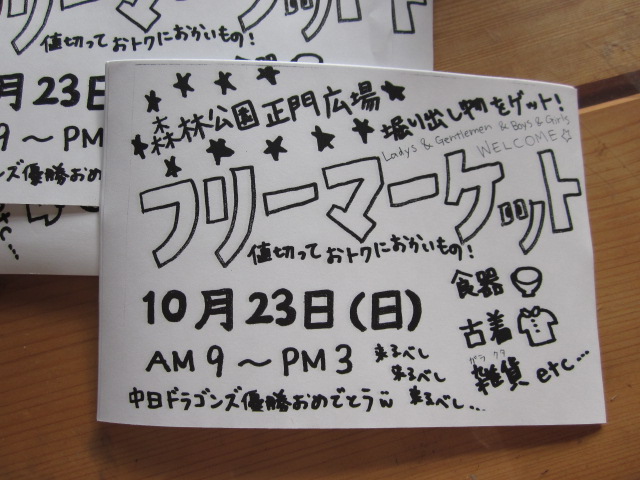 値切っておトクにおかいもの!
月23日
9～PM
ンズ優勝おめ
etc...
森林公園正門広場
掘り出し物をゲット!
Ladys & Gentlemen & Boys & Girls
WELCOME☆
フリーマーケット
値切っておトクにおかいもの!
10月23日(日)
食器
古着
ガラクタ
雑貨 etc...
AM9～PM3
来るべし
来るべし
来るべし...
中日ドラゴンズ優勝おめでとう